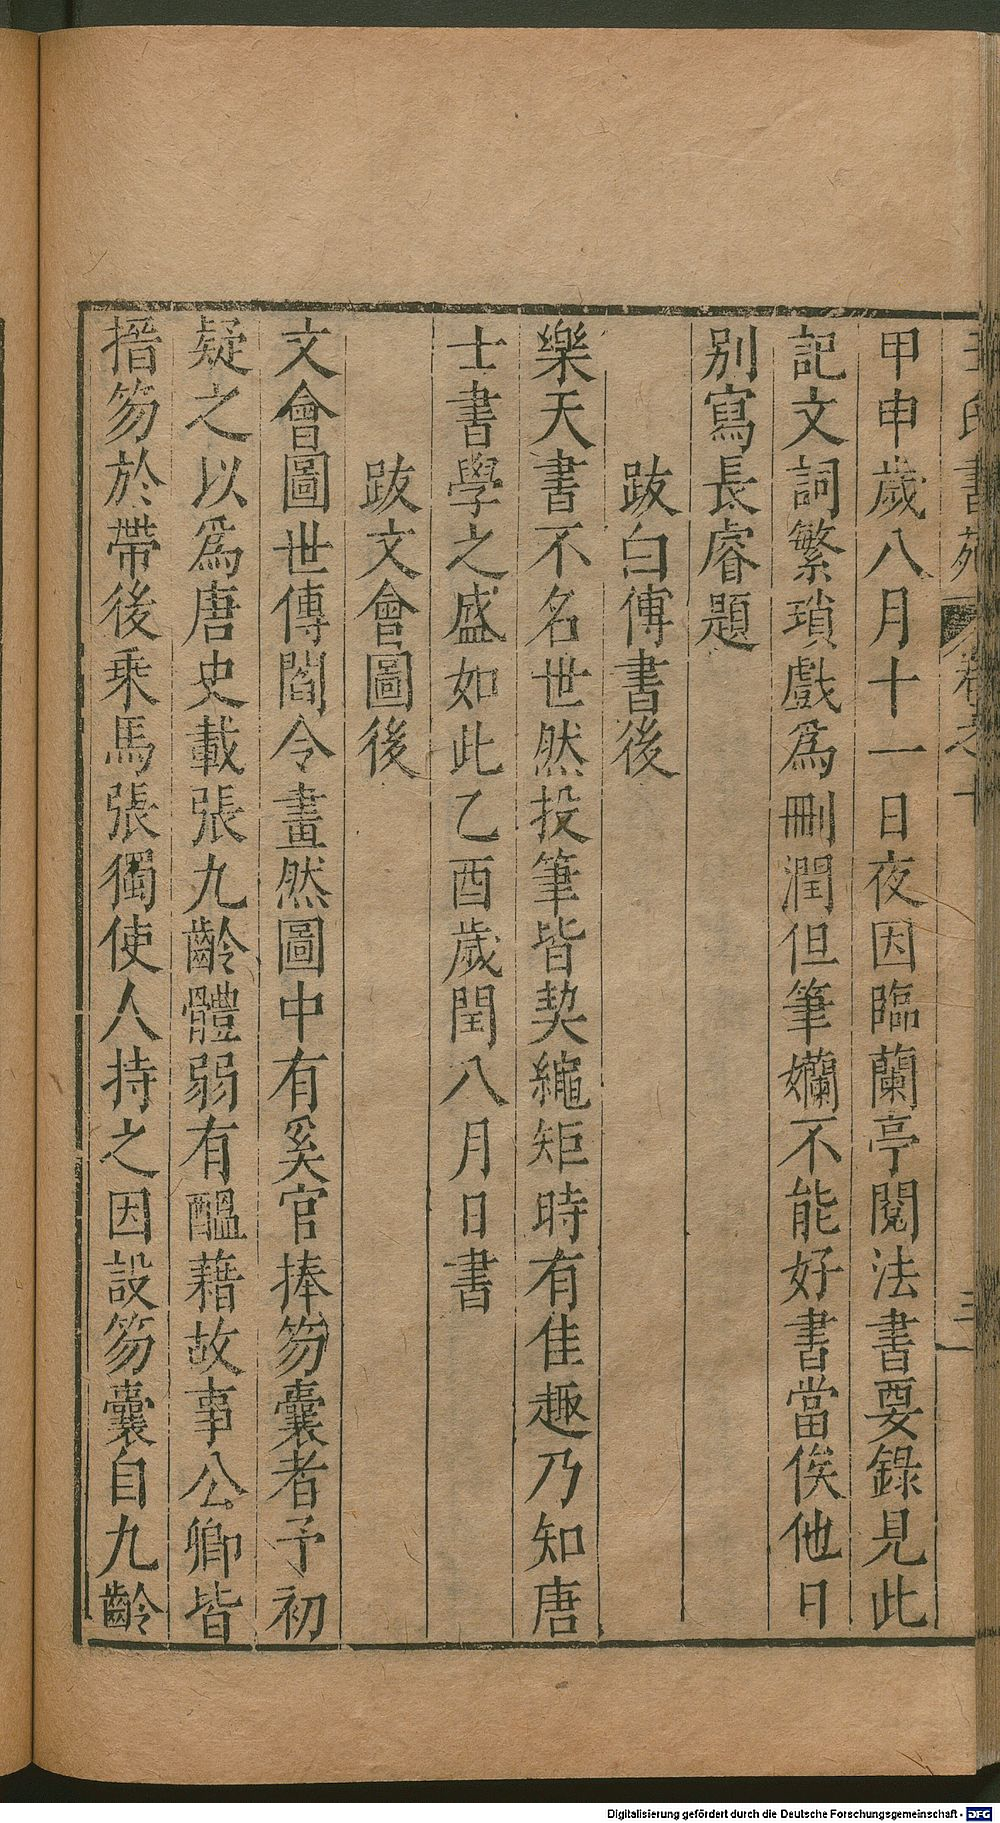 王氏書苑 卷之十 三
甲申歲八月十一日夜因臨蘭亭閱法書要錄見此
記文詞繁瑣戲爲刪潤但筆嬾不能好書當俟他日
別寫長睿題
跋白傅書後
樂天書不名世然投筆皆契繩矩時有佳趣乃知唐
士書學之盛如此乙酉歲閏八月日書
跋文會圖後
文會圖世傳閻令畫然圖中有奚官捧笏囊者予初
疑之以爲唐史載張九齡體弱有醞藉故事公卿皆
搢笏於帶後乘馬張獨使人持之因設笏囊自九齡
Digitalisierung gefördert durch die Deutsche Forschungsgemeinschaft - DFG